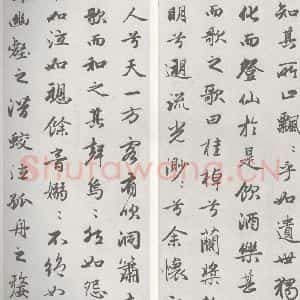 知其所止飄〻乎如遺世獨
化而登仙於是飲酒樂甚
而歌之歌曰桂棹兮蘭槳
明兮遡流光渺〻兮余懷
人兮天一方客有吹洞簫
歌而和之其聲烏〻然如怨
如泣如聽餘音嫋〻不絕如
幽壑之潛蛟泣孤舟之嫠
Shufawang.CN